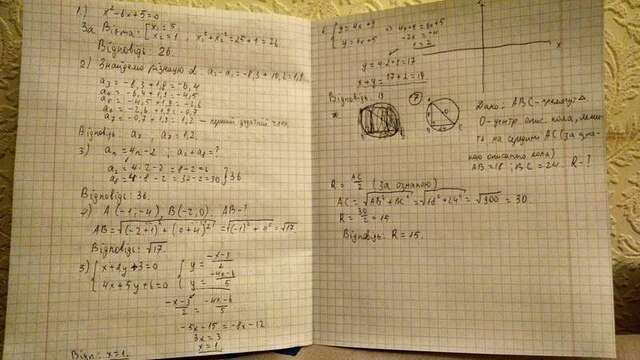 1.) x² - 6x + 5 = 0
За Вієта: [x₁ = 5
x₂ = 1 ; x₁² + x₂² = 25 + 1 = 26
Відповідь: 26.
2) Знайдемо різницю d: a₂ - a₁ = -8,3 + 10,2 = 1,9
a₃ = -8,3 + 1,9 = -6,4
a₄ = -6,4 + 1,9 = -4,5
a₅ = -4,5 + 1,9 = -2,6
a₆ = -2,6 + 1,9 = -0,7
a₇ = -0,7 + 1,9 = 1,2 - перший додатній член
Відповідь: a₇ = 1,2
3) aₙ = 4n - 2 ; a₂ + a₈ = ?
a₂ = 4·2 - 2 = 8 - 2 = 6
a₈ = 4·8 - 2 = 32 - 2 = 30 } 36
Відповідь: 36.
4) A(-1; -4), B(-2; 0). AB - ?
AB = √(-2+1)² + (0+4)² = √(-1)² + 4² = √17.
Відповідь: √17.
5) { x + 2y + 3 = 0
4x + 5y + 6 = 0
{ y = -x-3/2
y = -4x-6/5
-x-3/2 = -4x-6/5
-5x - 15 = -8x - 12
3x = 3
x = 1
Відп: x = 1.
6. { y = 4x + 9
=> 4x + 9 = 6x + 5
-2x = -4
x = 2
y = 4·2 + 9 = 17
x + y = 17 + 2 = 19
Відповідь: 19
x
7
Дано: ABC - прямокут Δ
O - центр опис кола, лежи
ть на середині AC (за
описаного кола)
AB = 18 ; BC = 24. R - ?
R = AC/2 (За ознакою)
AC = √AB² + BC² = √18² + 24² = √900 = 30.
R = 30/2 = 15
Відповідь: R = 15.